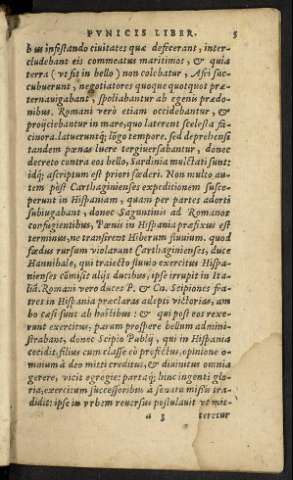 PVNICIS LIBER. 5
bus infestando ciuitates quæ defecerant, inter-
cludebant eis commeatus maritimos, & quia
terra (vt fit in bello) non colebatur, Afri suc-
cubuerunt, negotiatores quoque quotquot præ-
ternauigabant, spoliabantur ab egenis prædo-
nibus. Romani verò etiam occidebantur, &
proijciebantur in mare, quo laterent scelesta fa-
cinora. latueruntq; lōgo tempore. sed deprehensi
tandem pœnas luere tergiuersabantur, donec
decreto contra eos bello, Sardinia mulctati sunt:
idq; ascriptum est priori fœderi. Non multo au-
tem pòst Carthaginienses expeditionem susce-
perunt in Hispaniam, quam per partes adorti
subiugabant, donec Saguntinis ad Romanos
confugientibus, Pœnis in Hispania præfixus est
terminus, ne transirent Hiberum fluuium. quod
fœdus rursum violarunt Carthaginenses, duce
Hannibale, qui traiecto fluuio exercitus Hispa-
nienses cōmisit alijs ducibus, ipse irrupit in Ita-
liā. Romani vero duces P. & Cn. Scipiones fra-
tres in Hispania præclaras adepti victorias, am
bo cæsi sunt ab hostibus: & qui post eos rexe-
runt exercitus, parum prospere bellum admini-
strabant, donec Scipio Publij, qui in Hispania
cecidit, filius cum classe eò profectus, opinione o-
mnium à deo mitti creditus, & diuinitus omnia
gerere, vicit egregie: partaq; hinc ingenti glo-
ria, exercitum successoribus à senatu missis tra-
didit: ipse in vrbem reuersus postulauit vt mit-
a 3 teretur